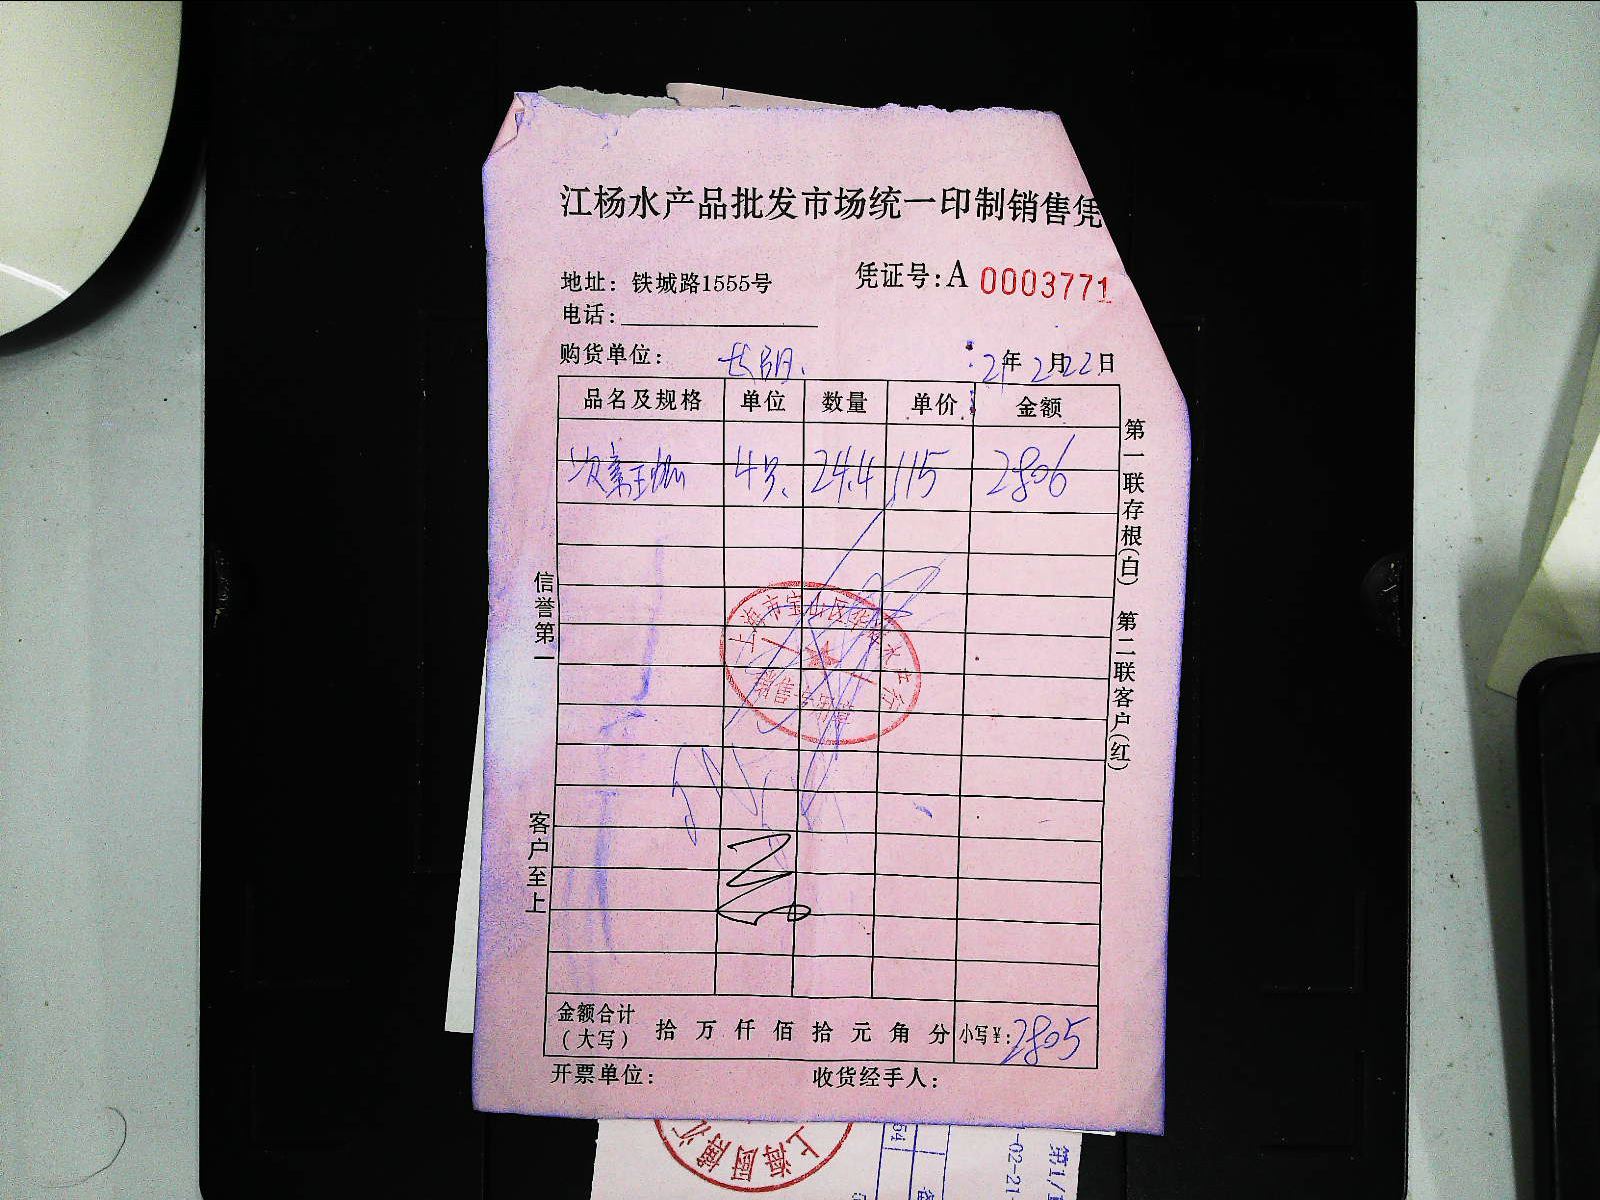 江杨水产品批发市场统一印制销售凭
地址：铁城路1555号
凭证号：A 0003771
电话：
购货单位：
21年2月22日
品名及规格 单位 数量 单价 金额
4号 24.4 115 2806
第一联存根（白） 第二联客户（红）
信誉第一
客户至上
上海市宝山区
水产行
销售专用章
金额合计（大写） 拾 万 仟 佰 拾 元 角 分 小写¥：2805
开票单位： 收货经手人：
上海厨
第1/1
-02-21
54